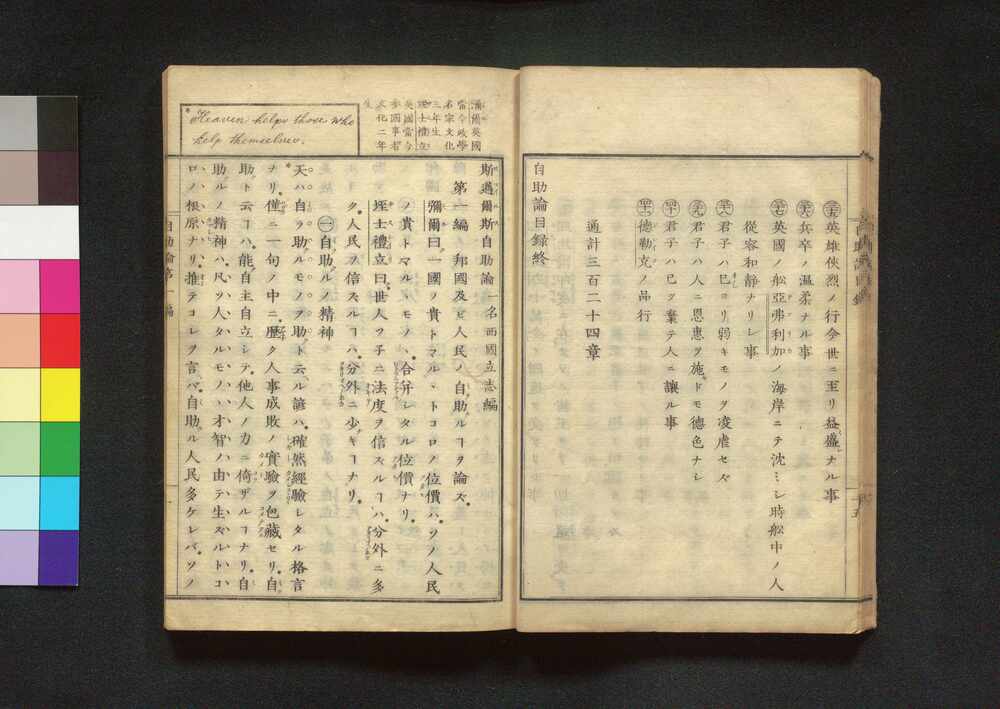 ㉟英雄俠烈ノ行今世ニ至リ益盛ナル事
㊱兵卒ノ溫柔ナル事
㊲英國ノ舩亞弗利加ノ海岸ニテ沈ミシ時舩中ノ人
從容和靜ナリシ事
㊳君子ハ己ヨリ弱キモノヲ凌虐セズ
㊴君子ハ人ニ恩惠ヲ施ドモ德色ナシ
㊵君子ハ己ヲ棄テ人ニ讓ル事
㊶德勒克ノ品行
通計三百二十四章
自助論目録終
斯邁爾斯自助論 一名西國立志編
第一編 邦國及ビ人民ノ自助ルヿヲ論ズ
彌爾曰一國ノ貴トマルヽトコロノ位價ハソノ人民
ノ貴トマルヽモノヽ合弁シタル位價ナリ
垤士禮立曰世人ワラ子ニ法度ヲ信ズルヿハ分外ニ多
ク人民ヲ信スルヿハ分外ニ少キヿナリ
㊀自助ルノ精神
天ハ自ラ助ルモノヲ助ト云ル諺ハ確然經驗シタル格言
ナリ僅ニ一句ノ中ニ歷ク人事成敗ノ實驗ヲ包藏セリ自
助ト云コハ能自主自立シテ他人ノ力ニ倚ザルヿナリ自
助ルノ精神ハ凡ソ人タルモノヽ才智ハ由テ生ズルトコ
ロノ根原ナリ推テコレヲ言バ自助ル人民多ケレバソノ
彌爾英國
當今政學
名家文化
三年生
垤士禮立
英國當今
參國事者
文化二年
生
* Heaven helps those who
help themselves.
自助論第一編